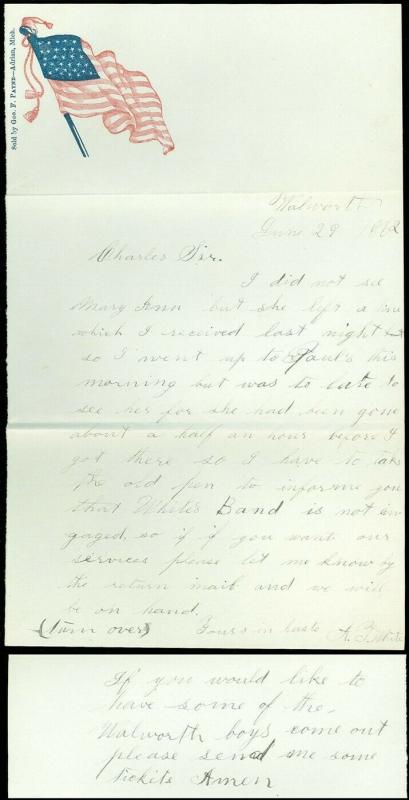 Sold by Geo. F. Payne—Adrian, Mich.
Walworth
June 29 1862
Charles Sir.
I did not see
Mary Ann but she left a line
which I received last night
so I went up to Paul's this
morning but was to late to
see her for she had been gone
about a half an hour before I
got there so I have to take
the old pen to informe you
that White's Band is not en
gaged. so if if you want our
services please let me know by
the return mail and we will
be on hand.
(turn over) Yours in haste A. White
If you would like to
have some of the
Walworth boys come out
please send me some
tickets Amen